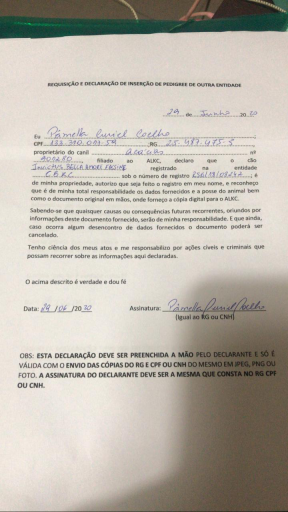 REQUISIÇÃO E DECLARAÇÃO DE INSERÇÃO DE PEDIGREE DE OUTRA ENTIDADE
29 de Junho 20 20
Eu Pâmella Curiel Coelho
CPF , RG
proprietário do canil nº
filiado ao ALKC, declaro que o cão
registrado na entidade
sob o número de registro , e
de minha propriedade, autorizo que seja feito o registro em meu nome, e reconheço
que é de minha total responsabilidade os dados fornecidos e a posse do animal bem
como o documento original em mãos, onde forneço a cópia digital para o ALKC.
Sabendo-se que quaisquer causas ou consequências futuras recorrentes, oriundos por
informações deste documento fornecido, serão de minha responsabilidade. E que ainda,
caso ocorra algum desencontro de dados fornecidos o documento poderá ser
cancelado.
Tenho ciência dos meus atos e me responsabilizo por ações cíveis e criminais que
possam recorrer sobre as informações aqui declaradas.
O acima descrito é verdade e dou fé
Data: 29 /06 /20 20 Assinatura: Pâmella Curiel Coelho
(Igual ao RG ou CNH)
OBS: ESTA DECLARAÇÃO DEVE SER PREENCHIDA A MÃO PELO DECLARANTE E SÓ É
VÁLIDA COM O ENVIO DAS CÓPIAS DO RG E CPF OU CNH DO MESMO EM JPEG, PNG OU
FOTO. A ASSINATURA DO DECLARANTE DEVE SER A MESMA QUE CONSTA NO RG CPF
OU CNH.